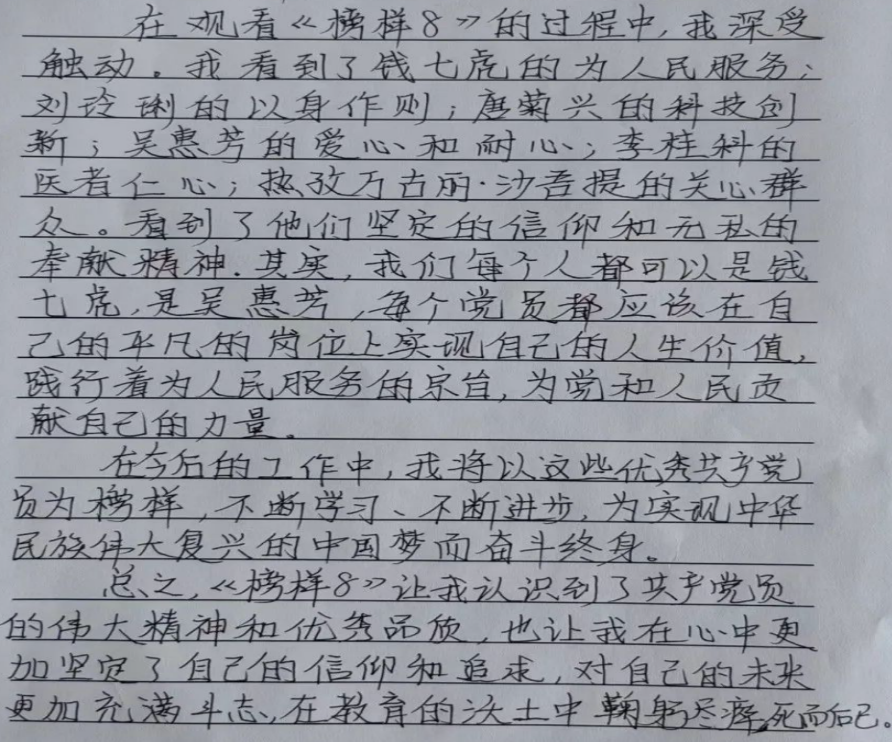 在观看《榜样8》的过程中,我深受
触动。我看到了钱七虎的为人民服务;
刘玲琍的以身作则;唐菊兴的科技创
新;吴惠芳的爱心和耐心;李桂科的
医者仁心;热孜万古丽·沙吾提的关心群
众。看到了他们坚定的信仰和无私的
奉献精神.其实,我们每个人都可以是钱
七虎,是吴惠芳,每个党员都应该在自
己的平凡的岗位上实现自己的人生价值,
践行着为人民服务的宗旨,为党和人民贡
献自己的力量。
在今后的工作中,我将以这些优秀共产党
员为榜样,不断学习、不断进步,为实现中华
民族伟大复兴的中国梦而奋斗终身。
总之,《榜样8》让我认识到了共产党员
的伟大精神和优秀品质,也让我在心中更
加坚定了自己的信仰和追求,对自己的未来
更加充满斗志,在教育的沃土中鞠躬尽瘁,死而后已。